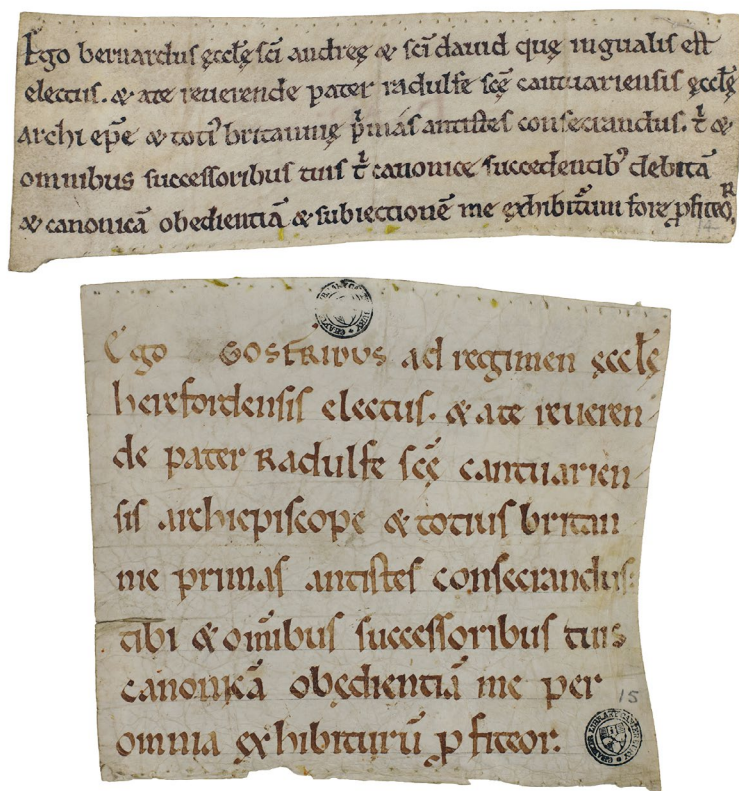 Ego bernardus ęcclę sci andreę & sci dauid quę in gualis est
electus. & a te reuerende pater radulfe scę cantuariensis ęcclę
archi epe & toti' britannię p'mas antistes consecrandus. t' &
omnibus successoribus tuis t' canonice succedentib' debitā
& canonicā obedientiā & subiectionē me exhibiturum fore pfiteoR.
14
Ego GOSFRIDUS ad regimen ęcclę
herefordensis electus. & a te reueren-
de pater Radulfe scę cantuarien-
sis archiepiscope & totius britan
nie primas antistes consecrandus:
tibi & omībus successoribus tuis
canonicā obędientiā me per
omnia exhibiturū pfiteor.
15